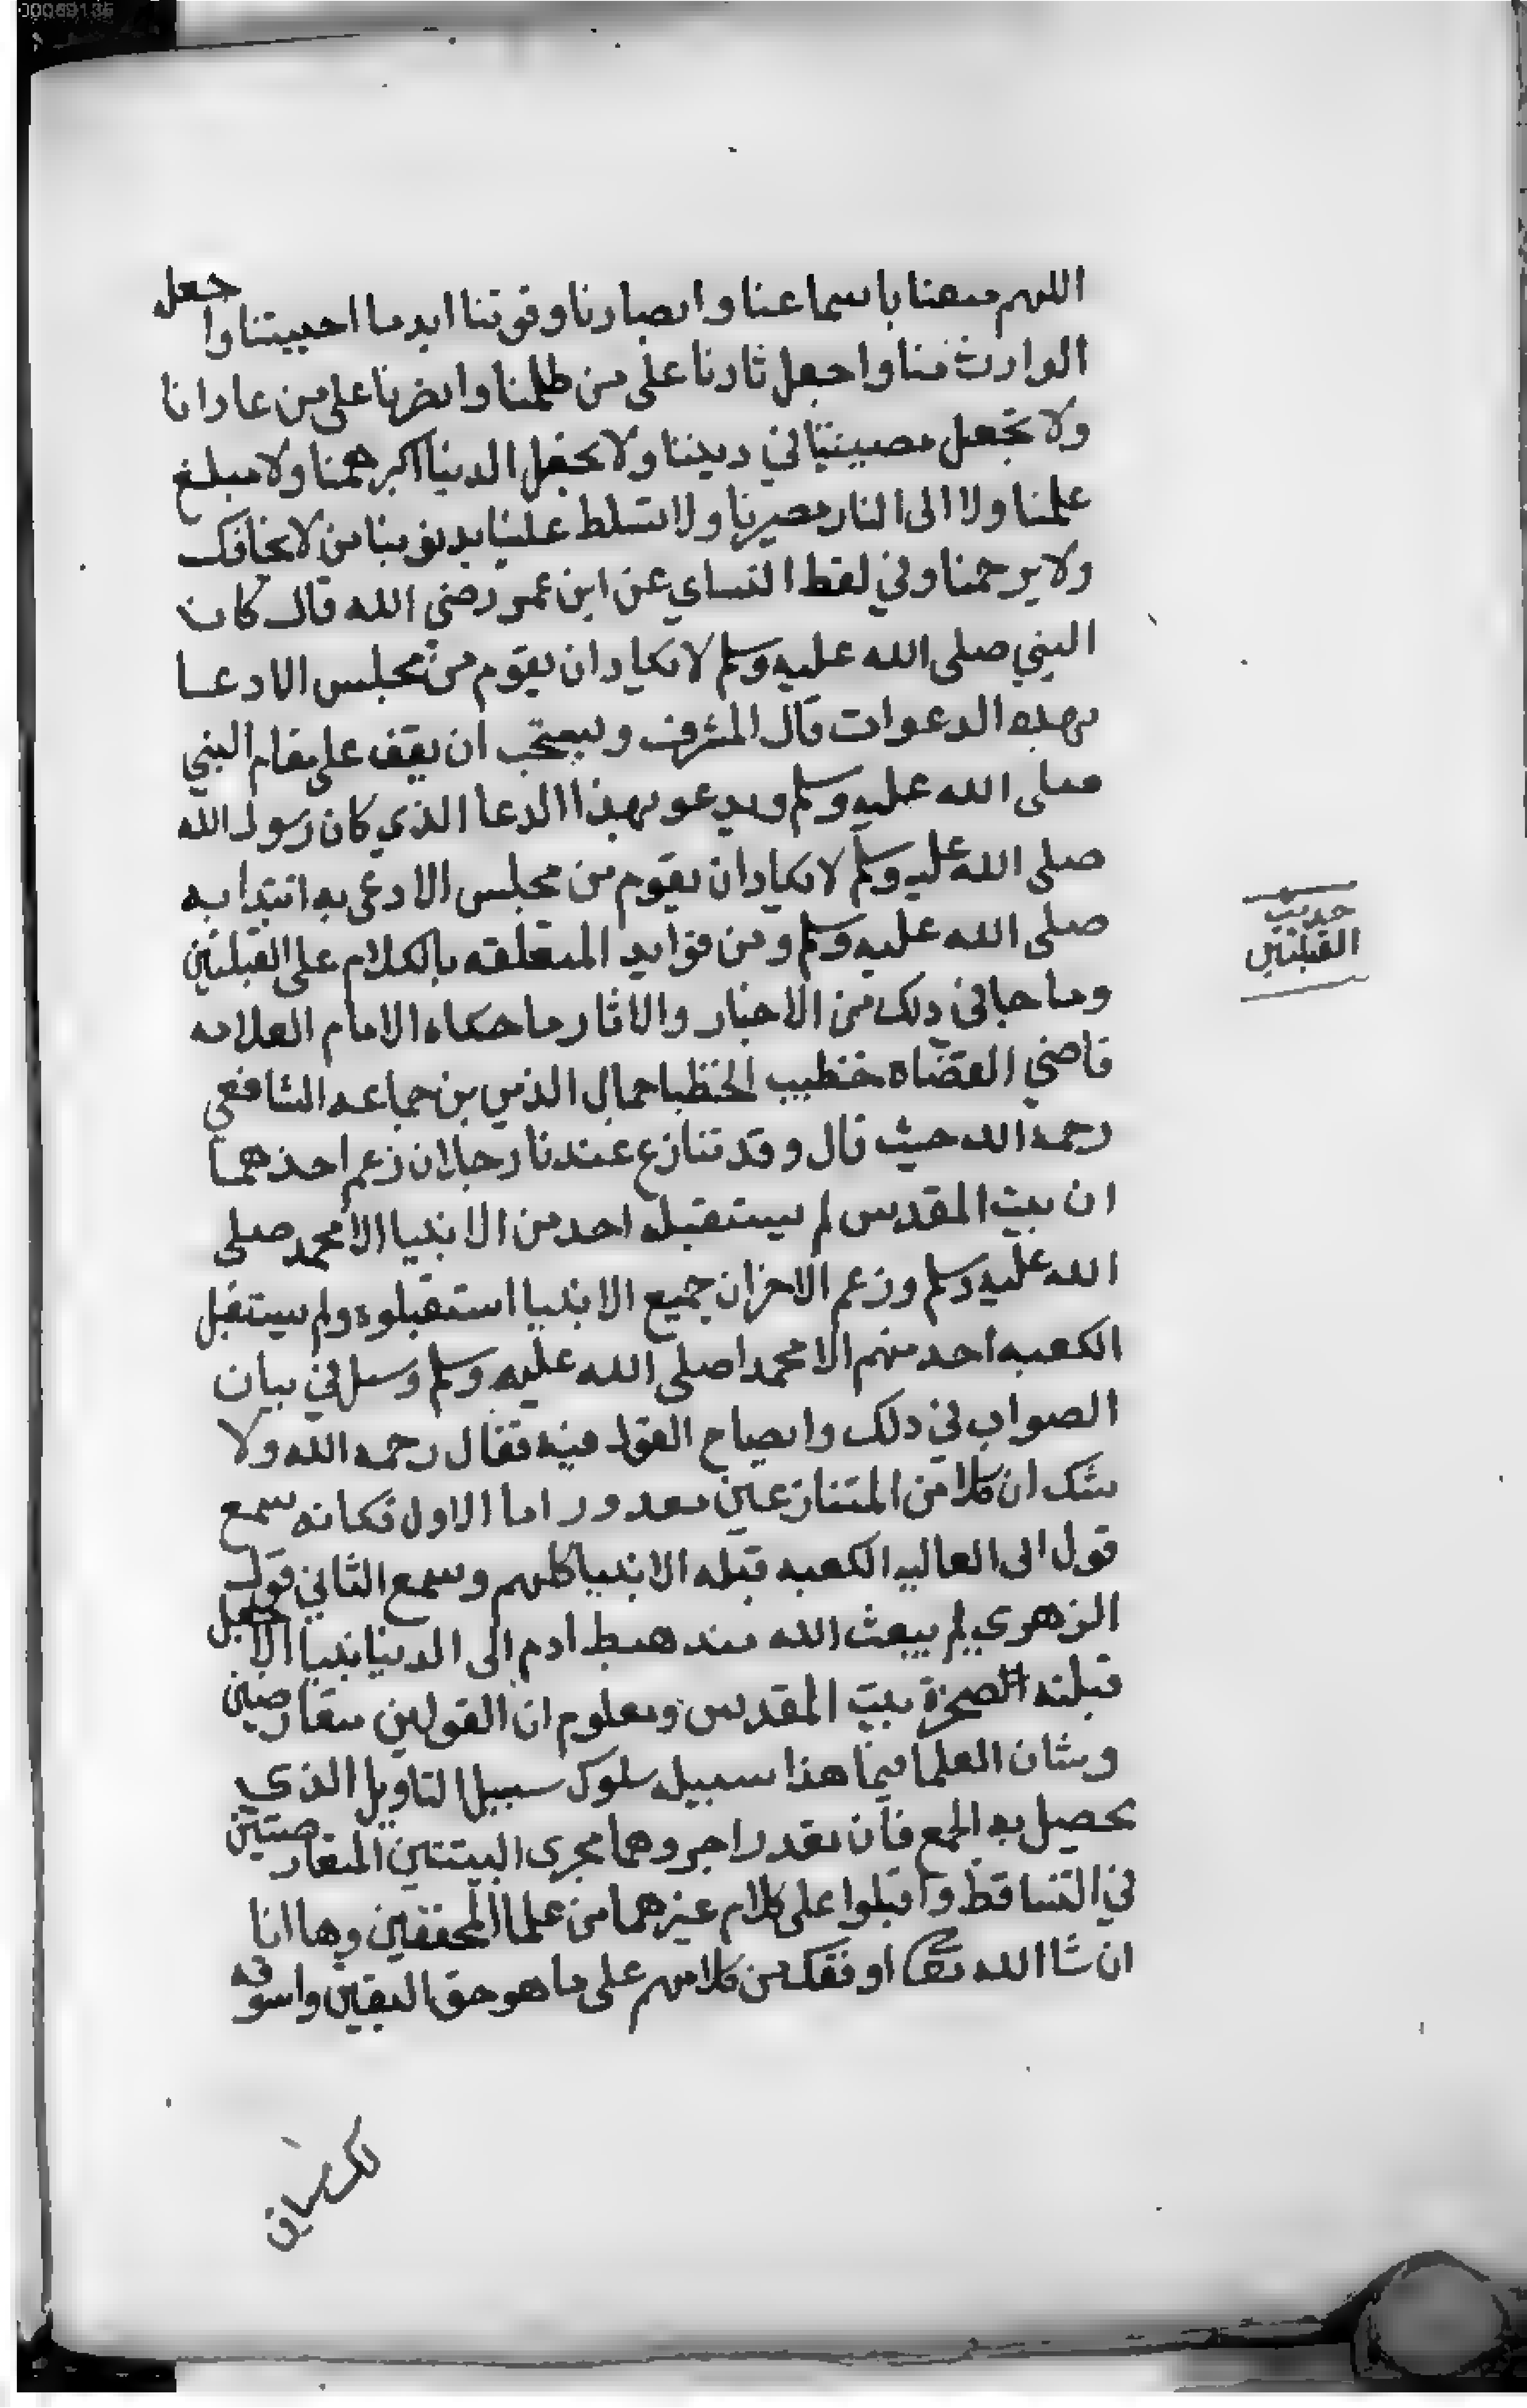 00069135
اللهم متعنا باسماعنا وابصارنا وقوتنا ابد ما احييتنا واجعله
الوارث منا واجعل ثارنا على من ظلمنا وانصرنا على من عادانا
ولا تجعل مصيبتنا في ديننا ولا تجعل الدنيا اكبر همنا ولا مبلغ
علمنا ولا الى النار مصيرنا ولا تسلط علينا بدنوبنا من لا يخافك
ولا يرحمنا وفي لفظ النساي عن ابن عمر رضي الله قال كان
النبي صلى الله عليه وسلم لا يكاد ان يقوم من مجلس الا دعا
بهده الدعوات قال المشرف ويستحب ان يقف على مقام النبي
صلى الله عليه وسلم ويدعو بهذا الدعا الذي كان رسول الله
صلى الله عليه وسلم لا يكاد ان يقوم من مجلس الا دعى به اقتدا به
صلى الله عليه وسلم ومن فوايد المتعلقه بالكلام على القبلتين
وما جا في دلك من الاخبار والاثار ما حكاه الامام العلامه
قاضي القضاه خطيب الخطبا جمال الدين بن جماعه الشافعي
رحمه الله حيث قال وقد تنازع عندنا رجلان زعم احدهما
ان بيت المقدس لم يستقبله احد من الانبيا الا محمد صلى
الله عليه وسلم وزعم الاخر ان جميع الانبيا استقبلوه ولم يستقبل
الكعبه احد منهم الا محمدا صلى الله عليه وسلم وسل في بيان
الصواب في دلك وايضاح القول فيه فقال رحمه الله ولا
شك ان كلا من المتنازعين معدور اما الاول فكانه سمع
قول ابى العاليه الكعبه قبله الانبيا كلهم وسمع الثاني قول
الزهري لم يبعث الله مند هبط ادم الى الدنيا نبيا الا جعل
قبلته الصخرة بيت المقدس ومعلوم ان القولين متعارضين
وشان العلما فيما هذا سبيله سلوك سبيل التاويل الذي
يحصل به الجمع فان تعدر اجروهما مجرى البينتين المتعارضتين
في التساقط واقبلوا على كلام غيرهما من علما المحققين وها انا
ان شا الله تعالى اوقفك من كلامهم على ما هو حق اليقين واسوقه
حديث
القبلتين
لك